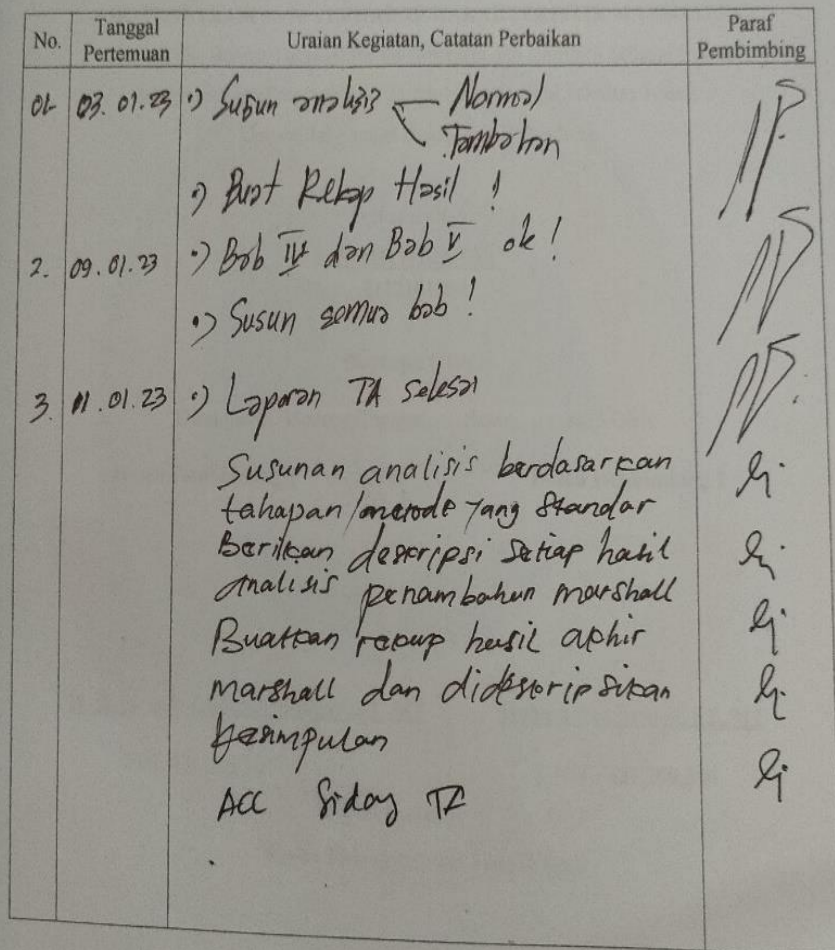 No. Tanggal Pertemuan Uraian Kegiatan, Catatan Perbaikan Paraf Pembimbing
01. 03.01.23 •) Susun analisis Normal
Tambahan
•) Buat Rekap Hasil !
2. 09.01.23 •) Bab IV dan Bab V ok!
•) Susun semua bab !
3. 11.01.23 •) Laporan TA selesai
Susunan analisis berdasarkan
tahapan/metode yang standar
Berikan deskripsi setiap hasil
analisis penambahan marshall
Buatkan hasil akhir
marshall dan dideskripsikan
kesimpulan
ACC Sidang TA